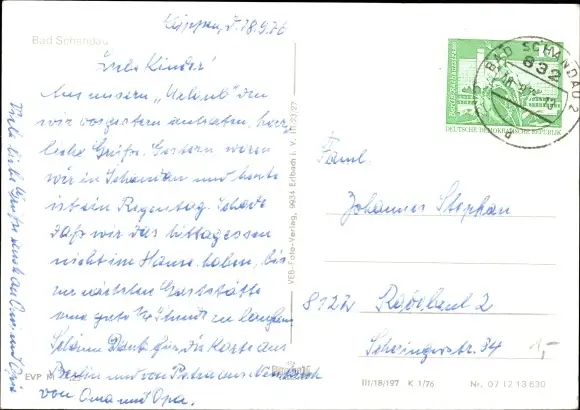 Bad Schandau
d. 18.9.76
Liebe Kinder!
Aus unserm "Urlaub" den
wir vorgestern antraten, herz
liche Grüße. Gestern waren
wir in Schandau und heute
ist ein Regentag. Schade
daß wir das Mittagessen
nicht im Hause haben, bis
zur nächsten Gaststätte
eine gute Stunde zu laufen
Schönen Dank für die Karte aus
Berlin und von Petra aus
von Oma und Opa.
Viele liebe Grüße auch an Oma und Opa
EVP M
VEB-Foto-Verlag, 9934 Erlbach i. V.
BAD SCHANDAU 2
832
DEUTSCHE DEMOKRATISCHE REPUBLIK
Faml.
Johannes Stephan
8122 Radebeul 2
34
1,-
III/18/197 K 1/76 Nr. 07 12 13 630